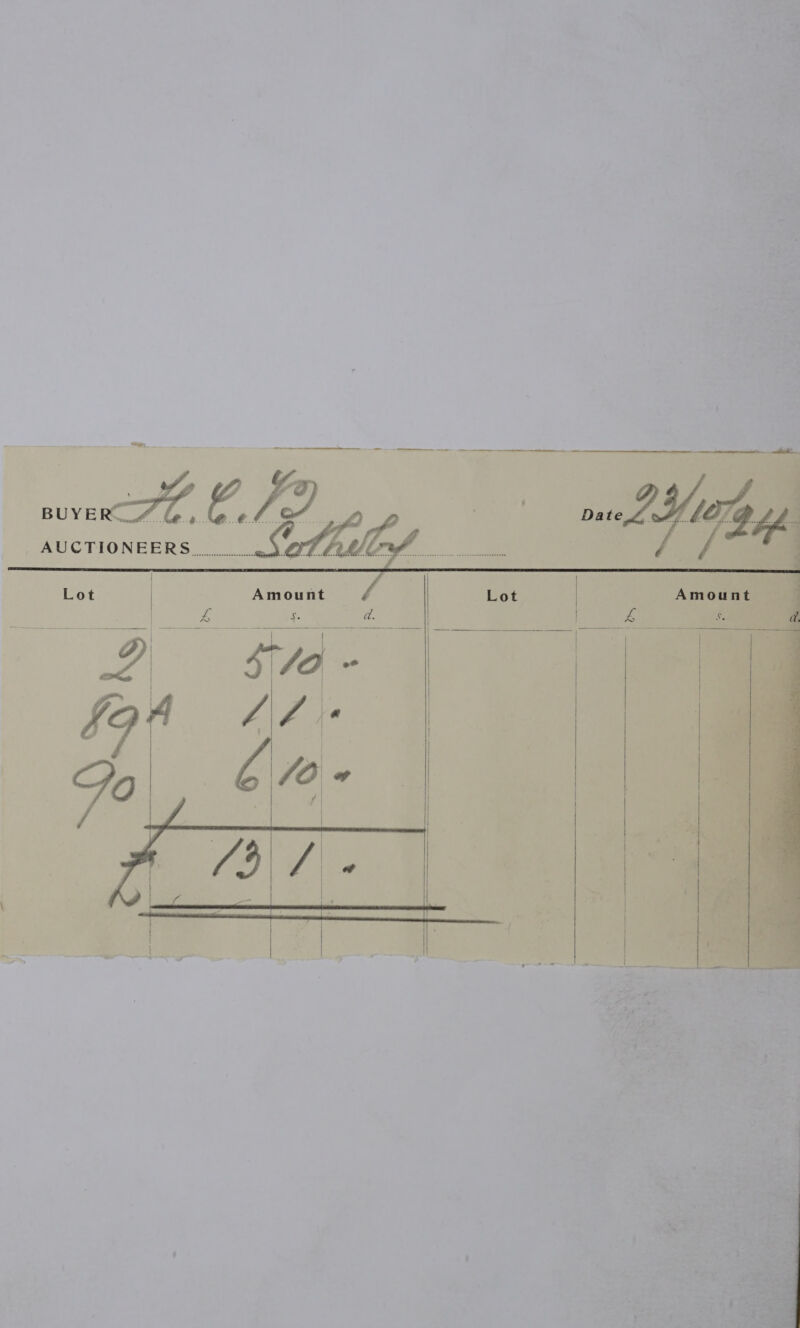 BUYER H. C. B
Date 23/10/24
AUCTIONEERS Sotheby
Lot Amount Lot Amount
£ s. d. £ s. d.
2 5 10 -
89A 1 1 -
90 6 10 -
£ 13 1 -